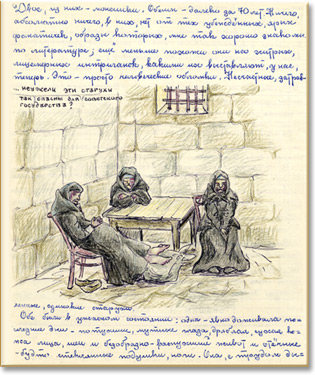 Двое из них - монашки. Обеим - далеко за 70 лет. Ничего,
абсолютно ничего, в них, нет от тех убеждённых, ярых
фанатичек, образы которых, мне так хорошо знакомы
по литературе; ещё меньше похожи они на хитрых,
лицемерных интриганок, какими нас выставляют, у нас,
теперь. Это - просто человеческие обломки. Несчастные,
... неужели эти старухи
так опасны для советского
государства?
одинокие старухи.
Обе были в ужасном состоянии; одна - явно доживала по-
следние дни - потухшие, мутные глаза, дряблая,
лица, шеи и безобразно-распухшие живот и отёчные
- будто стеклянные подушки, ноги. Она, с трудом